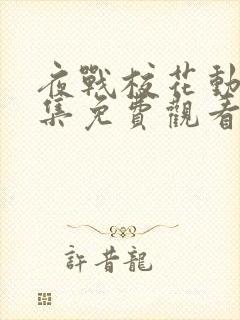 夜戰枝花動
集免費觀看
許昔龍